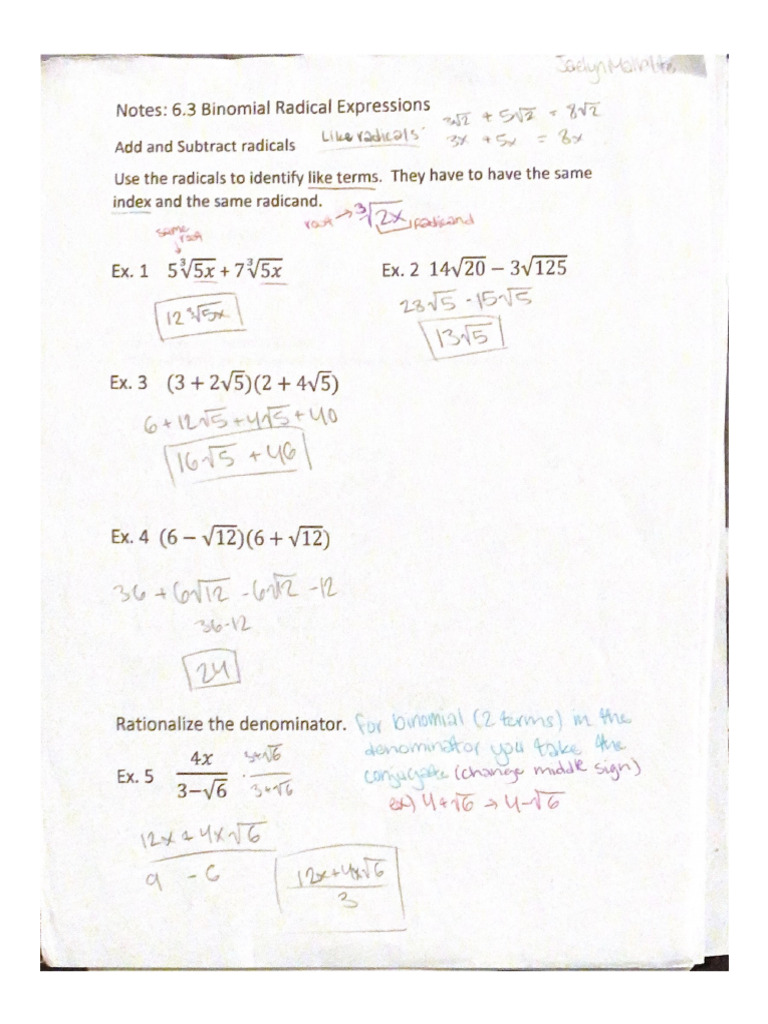 Notes: 6.3 Binomial Radical Expressions
3√2 + 5√2 = 8√2
Add and Subtract radicals Like radicals: 3x + 5x = 8x
Use the radicals to identify like terms. They have to have the same
index and the same radicand.
root → ∛2x radicand
same root
Ex. 1 5∛5x + 7∛5x Ex. 2 14√20 − 3√125
28√5 - 15√5
12∛5x 13√5
Ex. 3 (3 + 2√5)(2 + 4√5)
6 + 12√5 + 4√5 + 40
16√5 + 46
Ex. 4 (6 − √12)(6 + √12)
36 + 6√12 - 6√12 - 12
36-12
24
Rationalize the denominator. For binomial (2 terms) in the
denominator you take the
conjugate (change middle sign)
Ex. 5 4x/3−√6 · 3+√6/3+√6
ex) 4+√6 → 4-√6
12x + 4x√6
9 - 6
12x+4x√6
3